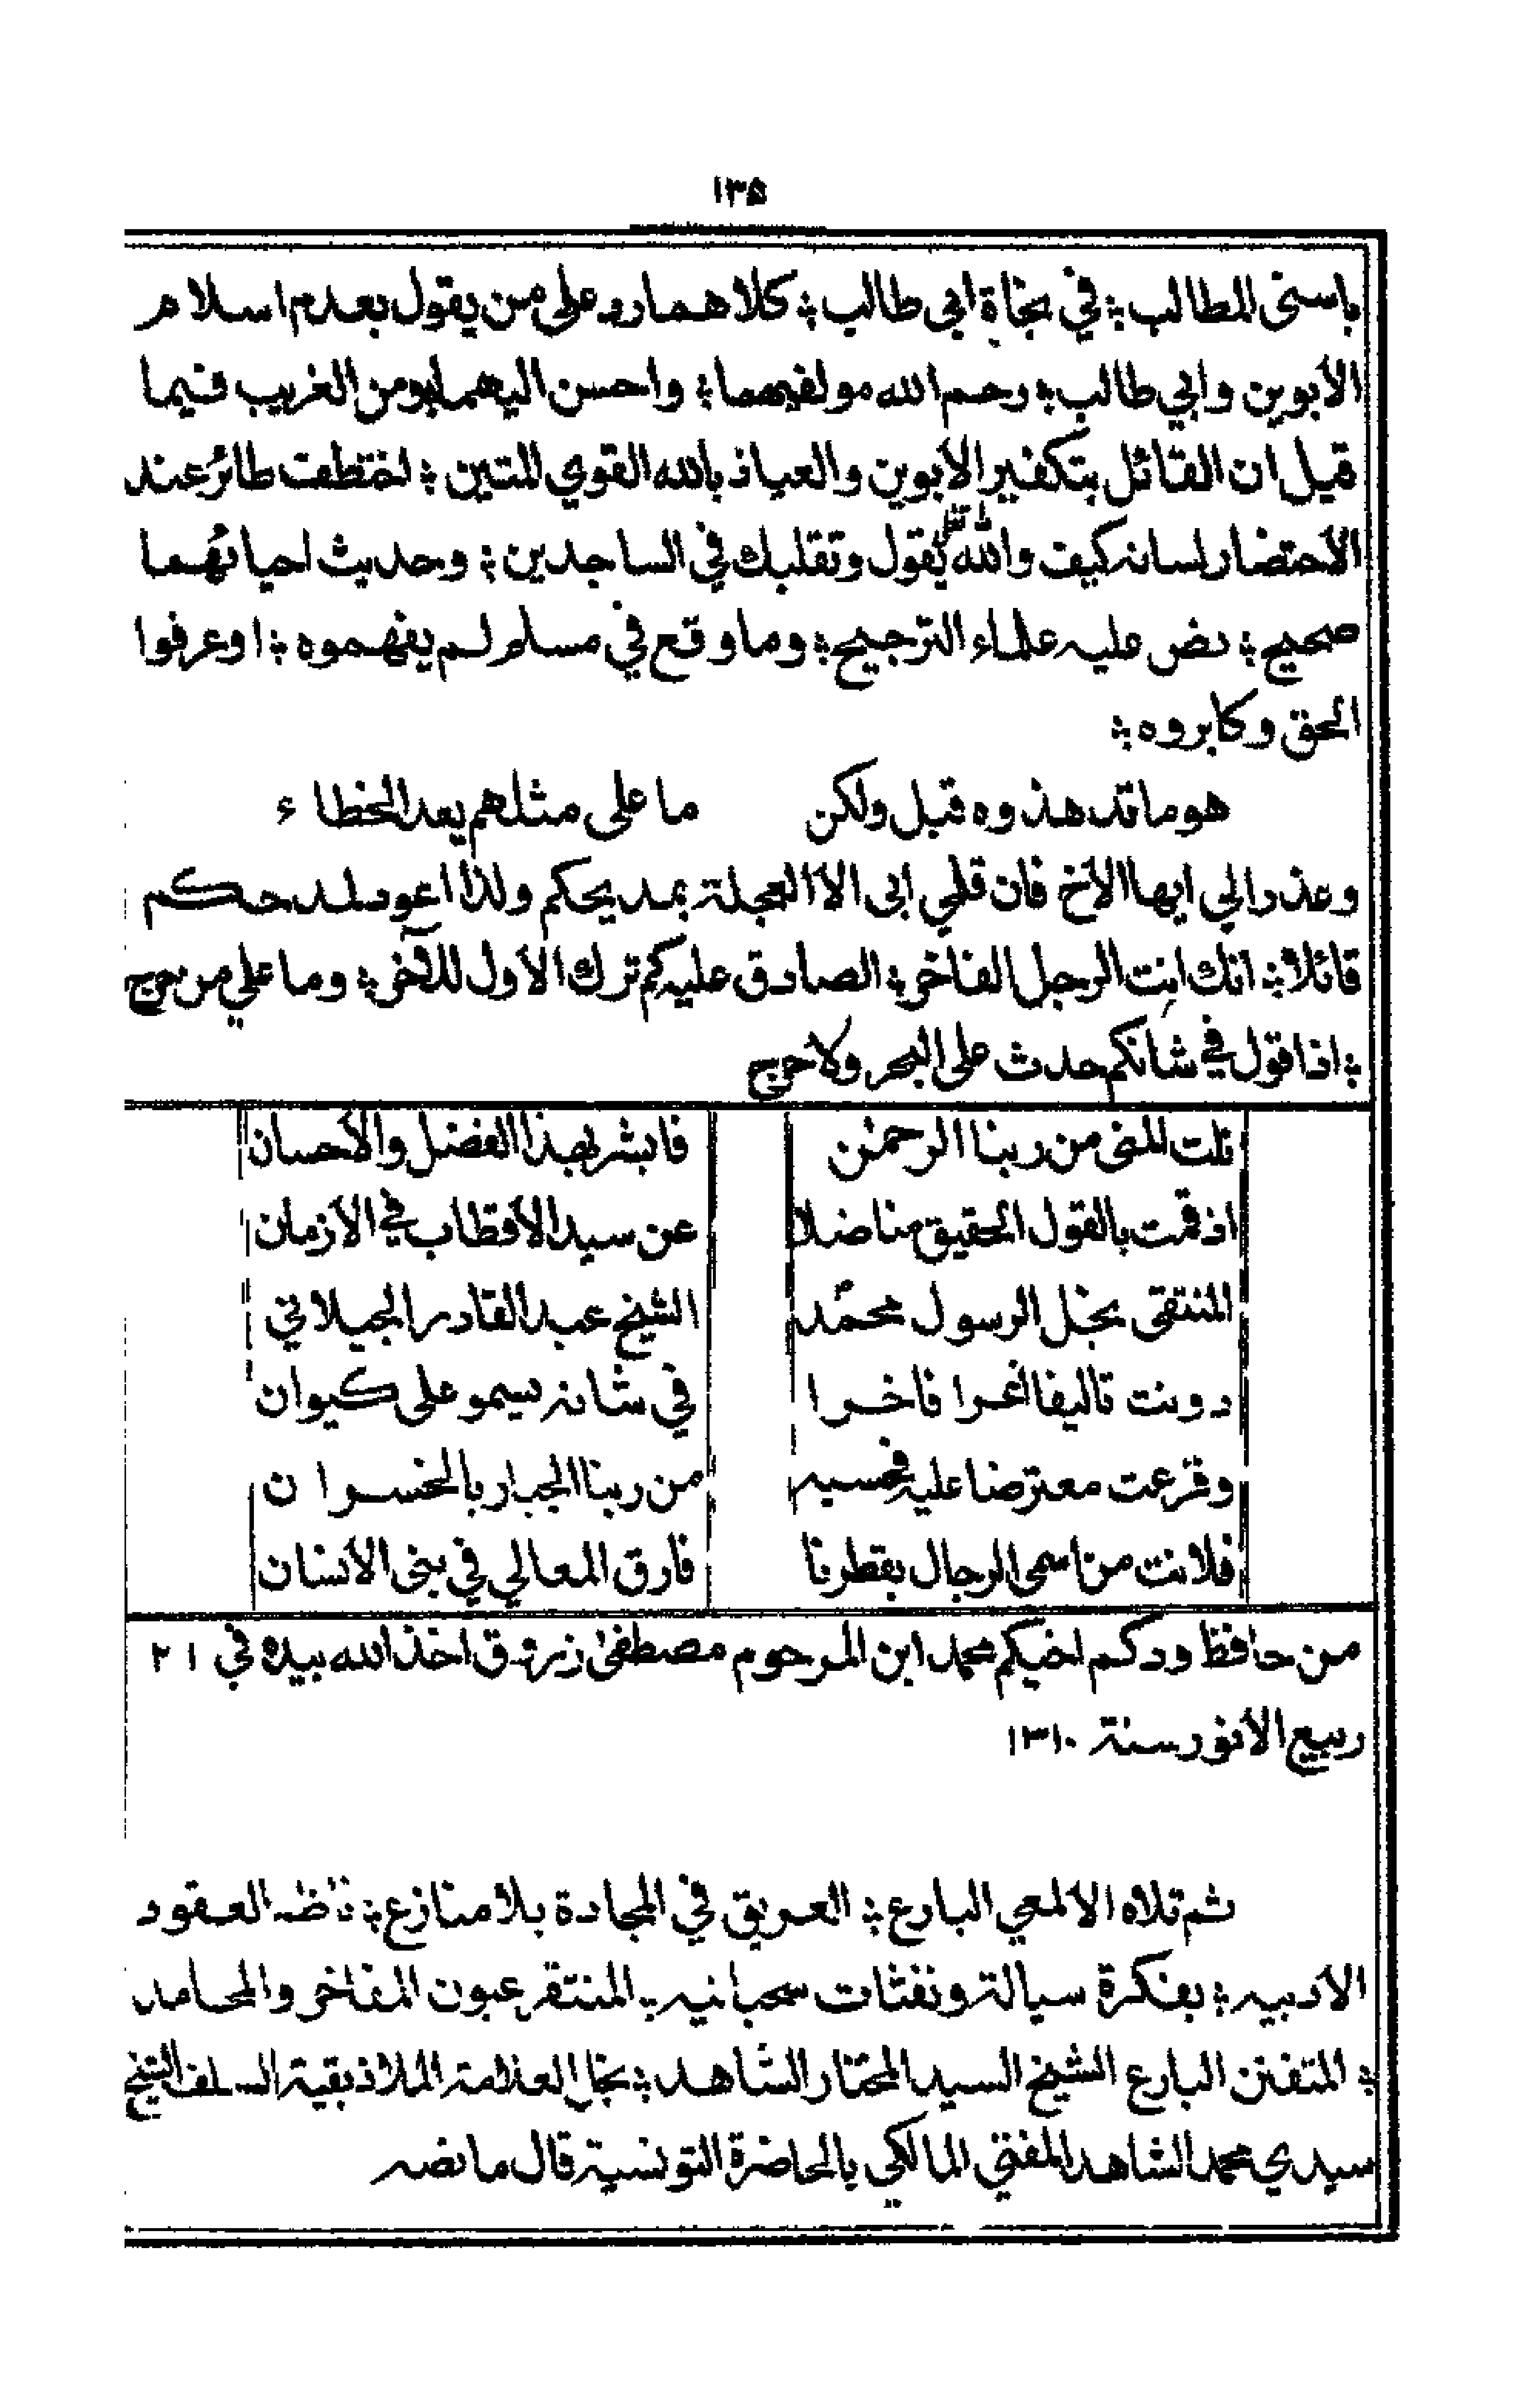 ١٣٥
باسنى المطالب ؛ في نجاة ابي طالب ؛ كلاهما رد على من يقول بعدم اسلام
الأبوين وابي طالب ؛ رحم الله مولفيهما ؛ واحسن اليهما ومن الغريب فيما
قيل ان القائل بتكفير الأبوين والعياذ بالله القوي المتين ؛ اختطفت طائر عند
الأحتضار لسانه كيف والله يقول وتقلبك في الساجدين ؛ وحديث احيائهما
صحيح ؛ نص عليه علماء الترجيح ؛ وما وقع في مسلم لم يفهموه ؛ او عرفوا
الحق وكابروه ؛
هو ما قد هذوه قبل ولكن ما على مثلهم يعد الخطاء
وعذرا لي ايها الأخ فان قلبي ابى الأ العجلة بمديحكم ولذا اعود لمدحكم
قائلا ؛ انك انت الرجل الفاخر ؛ الصادق عليه كم ترك الأول للآخر ؛ وما علي من حرج
؛ اذا قول في شانكم حدث على البحر ولا حرج
نلت المنى من ربنا الرحمٰن فابشر بهذا الفضل والأحسان
اذ قمت بالقول الحقيق مناضلا عن سيد الأقطاب في الأزمان
المنتقى نجل الرسول محمد الشيخ عبد القادر الجيلاني
دونت تاليفا أغرا فاخرا في شانه يسمو على كيوان
وقرعت معترضا عليه فحسبه من ربنا الجبار بالخسران
فلانت من اسمى الرجال بقطرنا فارق المعالي في بنى الأنسان
من حافظ ودكم اخيكم محمد ابن المرحوم مصطفى زروق اخذ الله بيده في ٢١
ربيع الأنور سنة ١٣١٠
ثم تلاه الألمعي البارع ؛ العريق في المجادة بلا منازع ؛ ناظم العقود
الأدبيه ؛ بفكرة سيالة ونفثات سحبانيه ؛ المنتقر عيون المفاخر والمحامد
؛ المتفنن البارع الشيخ السيد المختار الشاهد ؛ نجل العلامة الملاذ بقية السلف الشيخ
سيدي محمد الشاهد المفتي المالكي بالحاضرة التونسية قال ما نصه